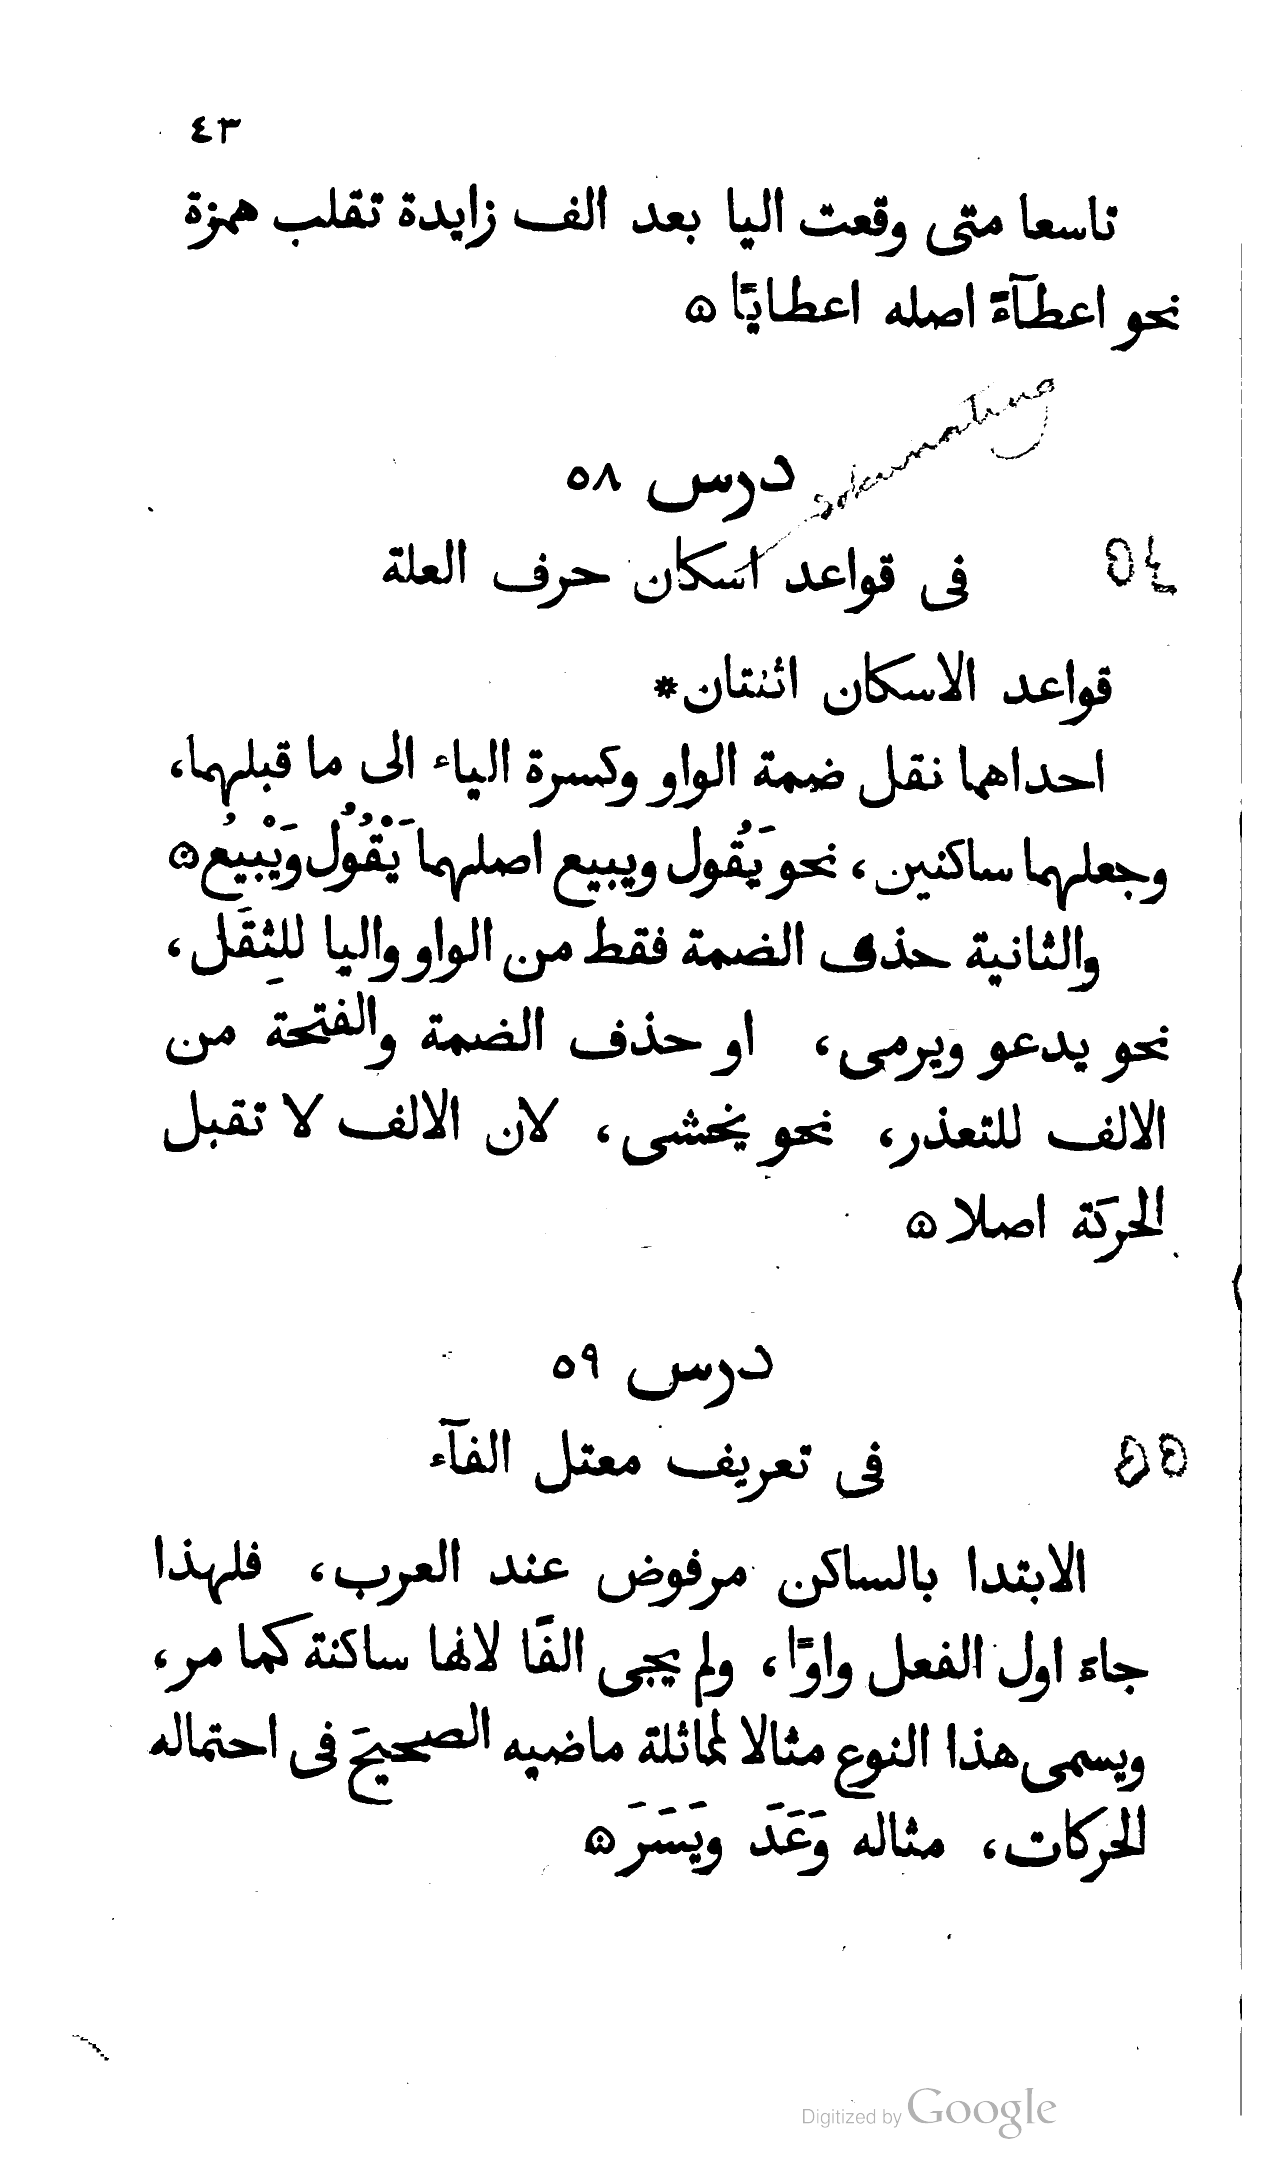 ٤٣
تاسعا متى وقعت اليا بعد الف زايدة تقلب همزة
نحو اعطآءً اصله اعطايًا ۞
درس ٥٨
٥٤
فى قواعد اسكان حرف العلة
قواعد الاسكان اثنتان*
احداهما نقل ضمة الواو وكسرة الياء الى ما قبلهما،
وجعلهما ساكنين، نحو يَقُول ويبيع اصلهما يَقْوُلُ ويَبْيِعُ ۞
والثانية حذف الضمة فقط من الواو واليا للثِقَل،
نحو يدعو ويرمى، او حذف الضمة والفتحة من
الالف للتعذر، نحو يخشى، لان الالف لا تقبل
الحركة اصلا ۞
درس ٥٩
٥٥
فى تعريف معتل الفآء
الابتدا بالساكن مرفوض عند العرب، فلهذا
جاء اول الفعل واوًا، ولم يجى الفًا لانها ساكنة كما مر،
ويسمى هذا النوع مثالا لمماثلة ماضيه الصحيحَ فى احتماله
الحركات، مثاله وَعَدَ ويَسَرَ ۞
Digitized by Google